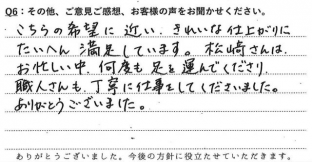 Q6：その他、ご意見ご感想、お客様の声をお聞かせください。
こちらの希望に近い、きれいな仕上がりに
たいへん満足しています。松崎さんは、
お忙しい中、何度も足を運んでくださり、
職人さんも、丁寧に仕事をしてくださいました。
ありがとうございました。
ありがとうございました。今後の方針に役立たせていただきます。